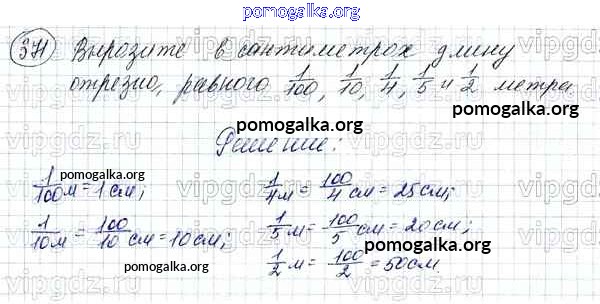 pomogalka.org
371 Выразите в сантиметрах длину
отрезка, равного 1/100, 1/10, 1/4, 1/5 и 1/2 метра.
pomogalka.org
pomogalka.org
Решение:
pomogalka.org
1/100 м = 1 см; 1/4 м = 100/4 см = 25 см;
pomogalka.org
1/10 м = 100/10 см = 10 см; 1/5 м = 100/5 см = 20 см;
pomogalka.org
1/2 м = 100/2 = 50 см.
pomogalka.org